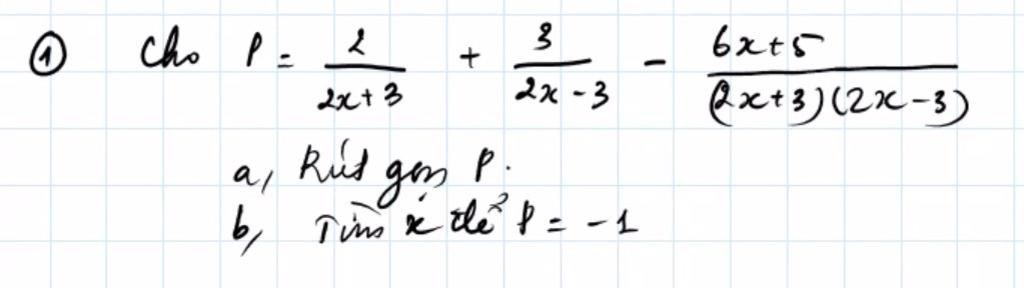 ① Cho P = 2/(2x+3) + 3/(2x-3) - (6x+5)/((2x+3)(2x-3))
a, Rút gọn P.
b, Tìm x để P = -1